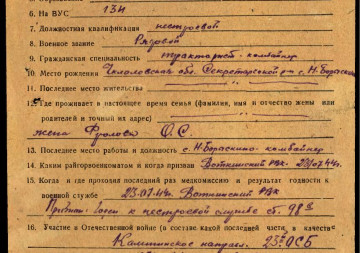 6. На ВУС 134
7. Должностная квалификация нестроевой
8. Военное звание Рядовой
9. Гражданская специальность тракторист-комбайнер
10. Место рождения обл. р-н с. Н-
11. Последнее место жительства
12. Где проживает в настоящее время семья (фамилия, имя и отчество жены или
родителей и точный их адрес)
жена Фролова О.С.
13. Последнее место работы и должность с. Н- комбайнер
14. Каким райгорвоенкоматом и когда призван Воткинский РВК. 23/07.44г.
15. Когда и где проходил последний раз медкомиссию и результат годности к
военной службе 23.07.44г. Воткинский РВК
Признан годен к нестроевой службе ст. 98
16. Участие в Отечественной войне (в составе какой последней части, в качестве
направ. ОСБ